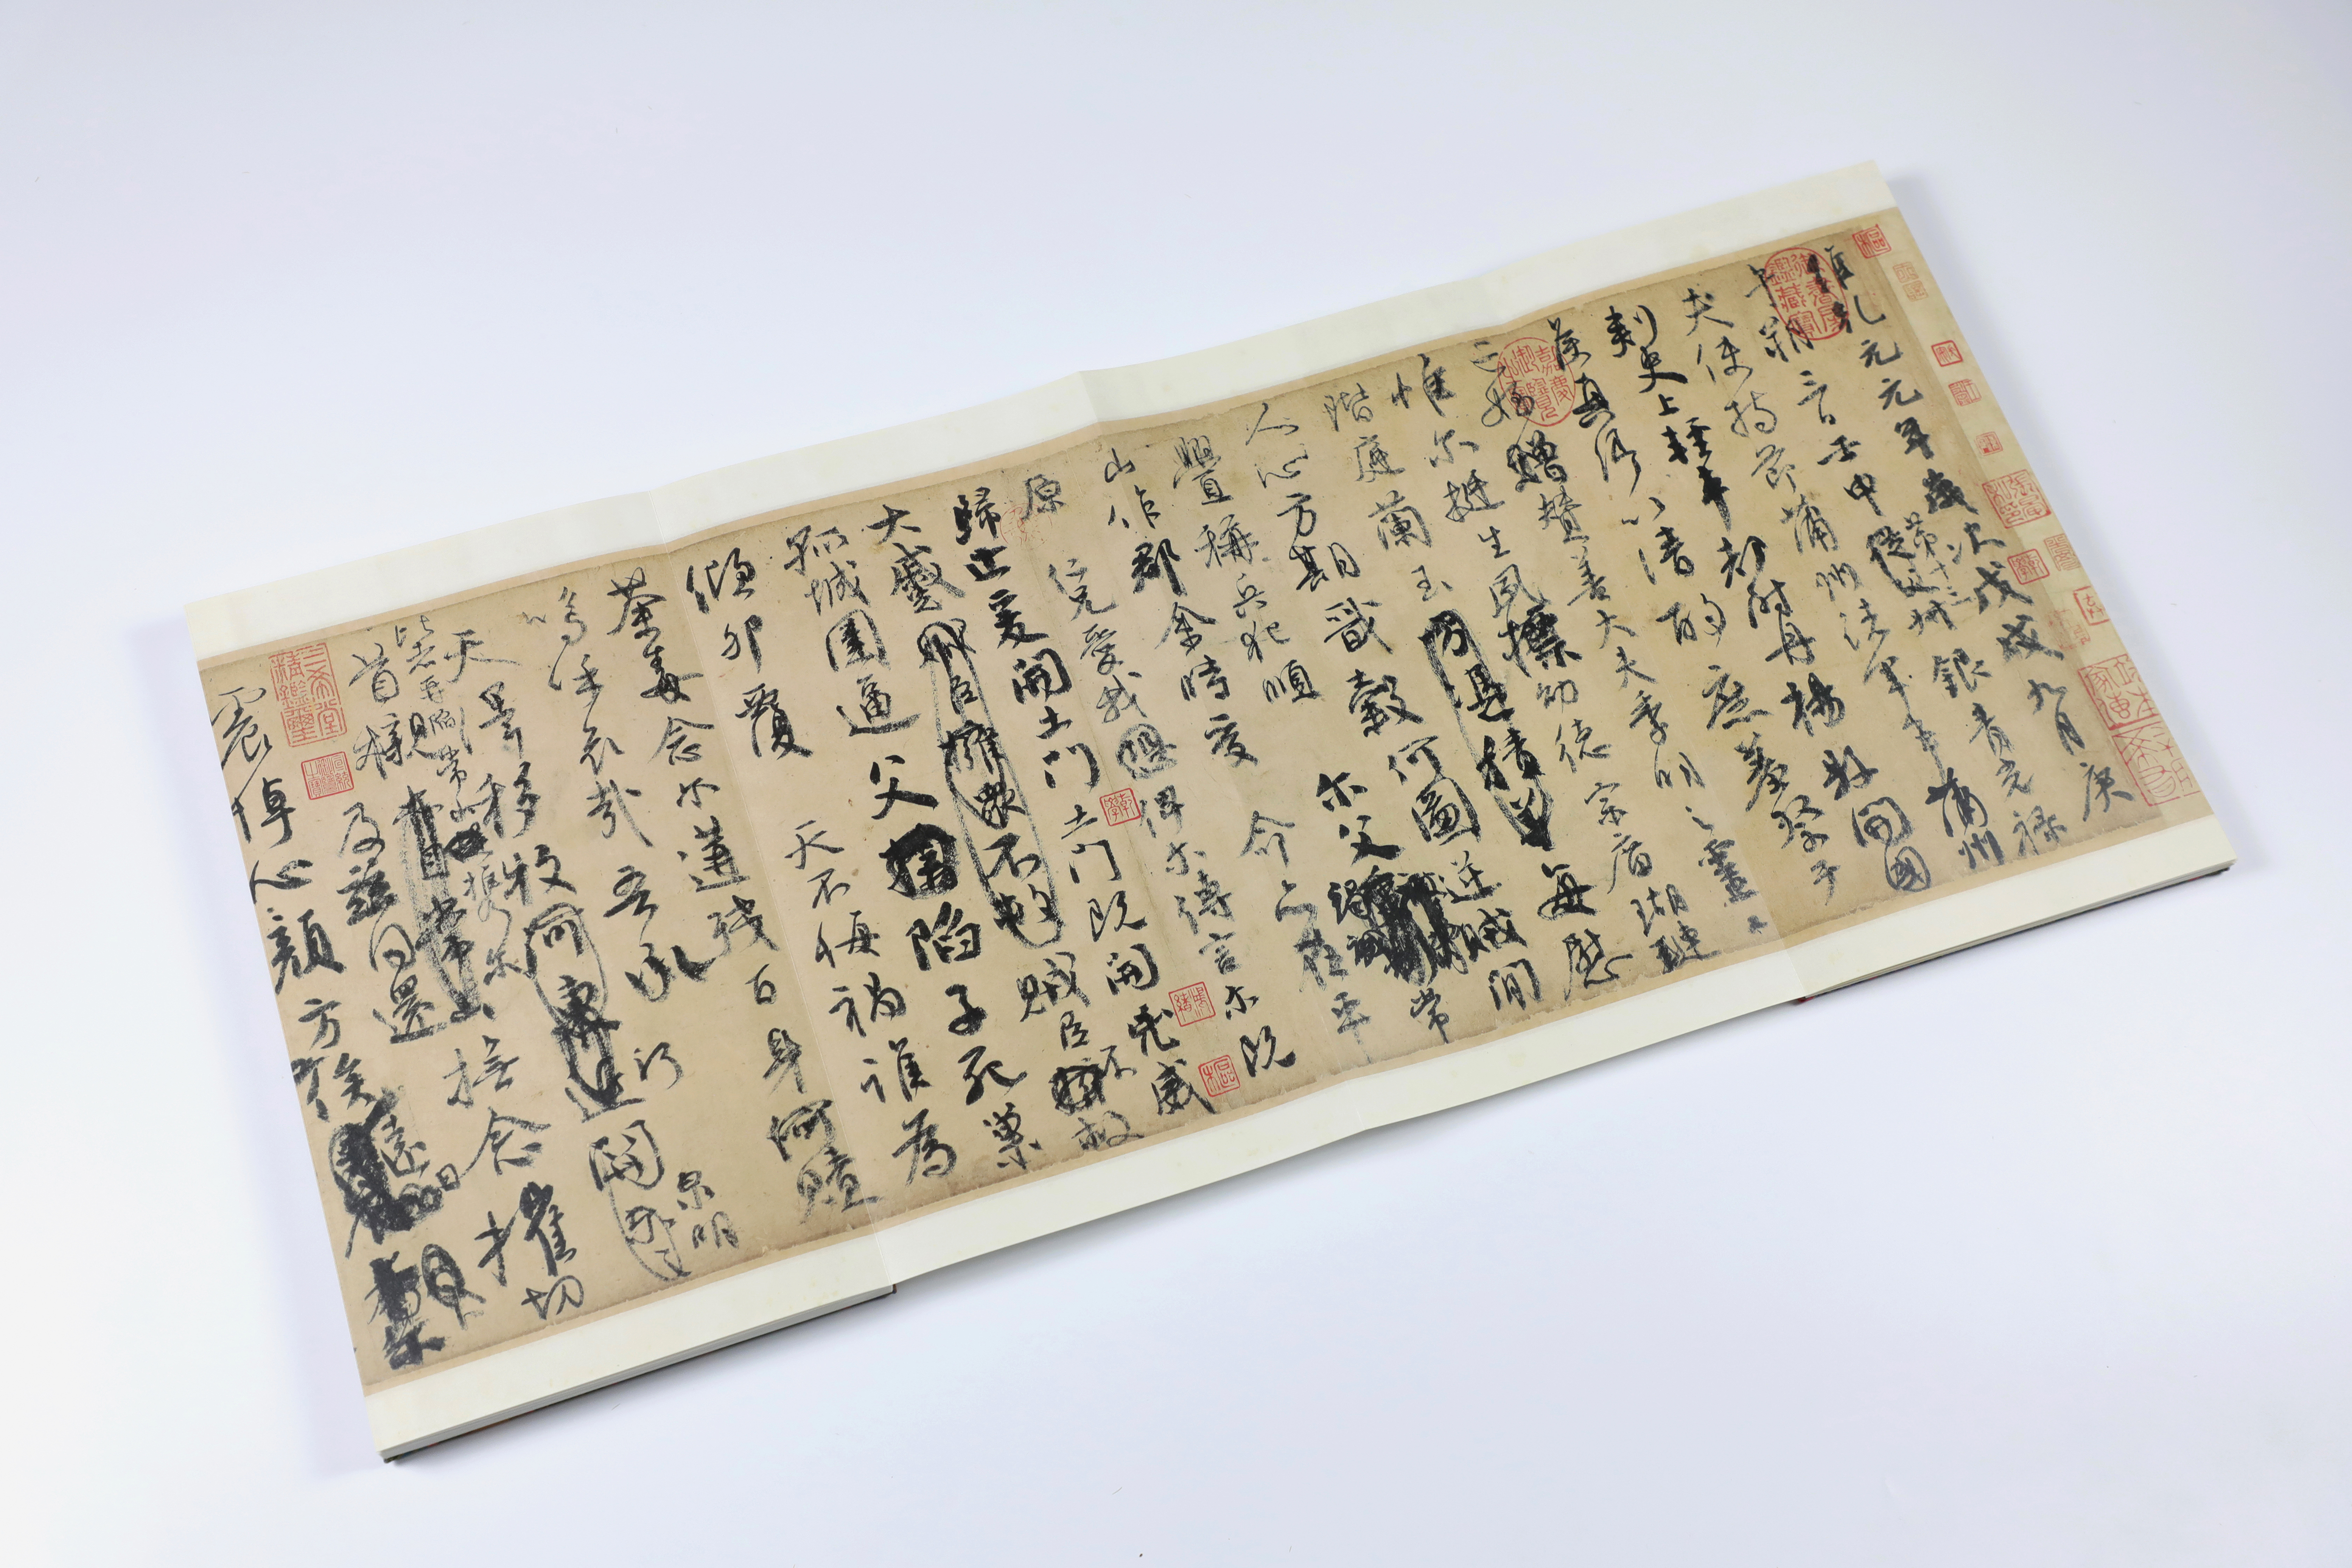 維乾元元年歲次戊戌九月庚
午朔三日壬申第十三叔銀青光祿
夫使持節蒲州諸軍事蒲州
刺史上輕車都尉丹楊縣開國
侯真卿以清酌庶羞祭于
亡姪贈贊善大夫季明之靈曰
惟爾挺生夙標幼德宗廟瑚璉
階庭蘭玉方憑積善每慰
人心方期戩穀何圖逆賊間
釁稱兵犯順爾父竭誠常
山作郡余時受命亦在平
原仁兄愛我恐俾爾傳言爾既
歸止爰開土門土門既開凶威
大蹙賊臣擁眾不救賊臣不救
孤城圍逼父陷子死巢
傾卵覆天不悔禍誰為
荼毒念爾遘殘百身何贖
嗚呼哀哉吾承
天澤移牧河東近河關泉明
比者再陷常山攜爾
首櫬及茲同還撫念摧切
震悼心顏方俟遠日